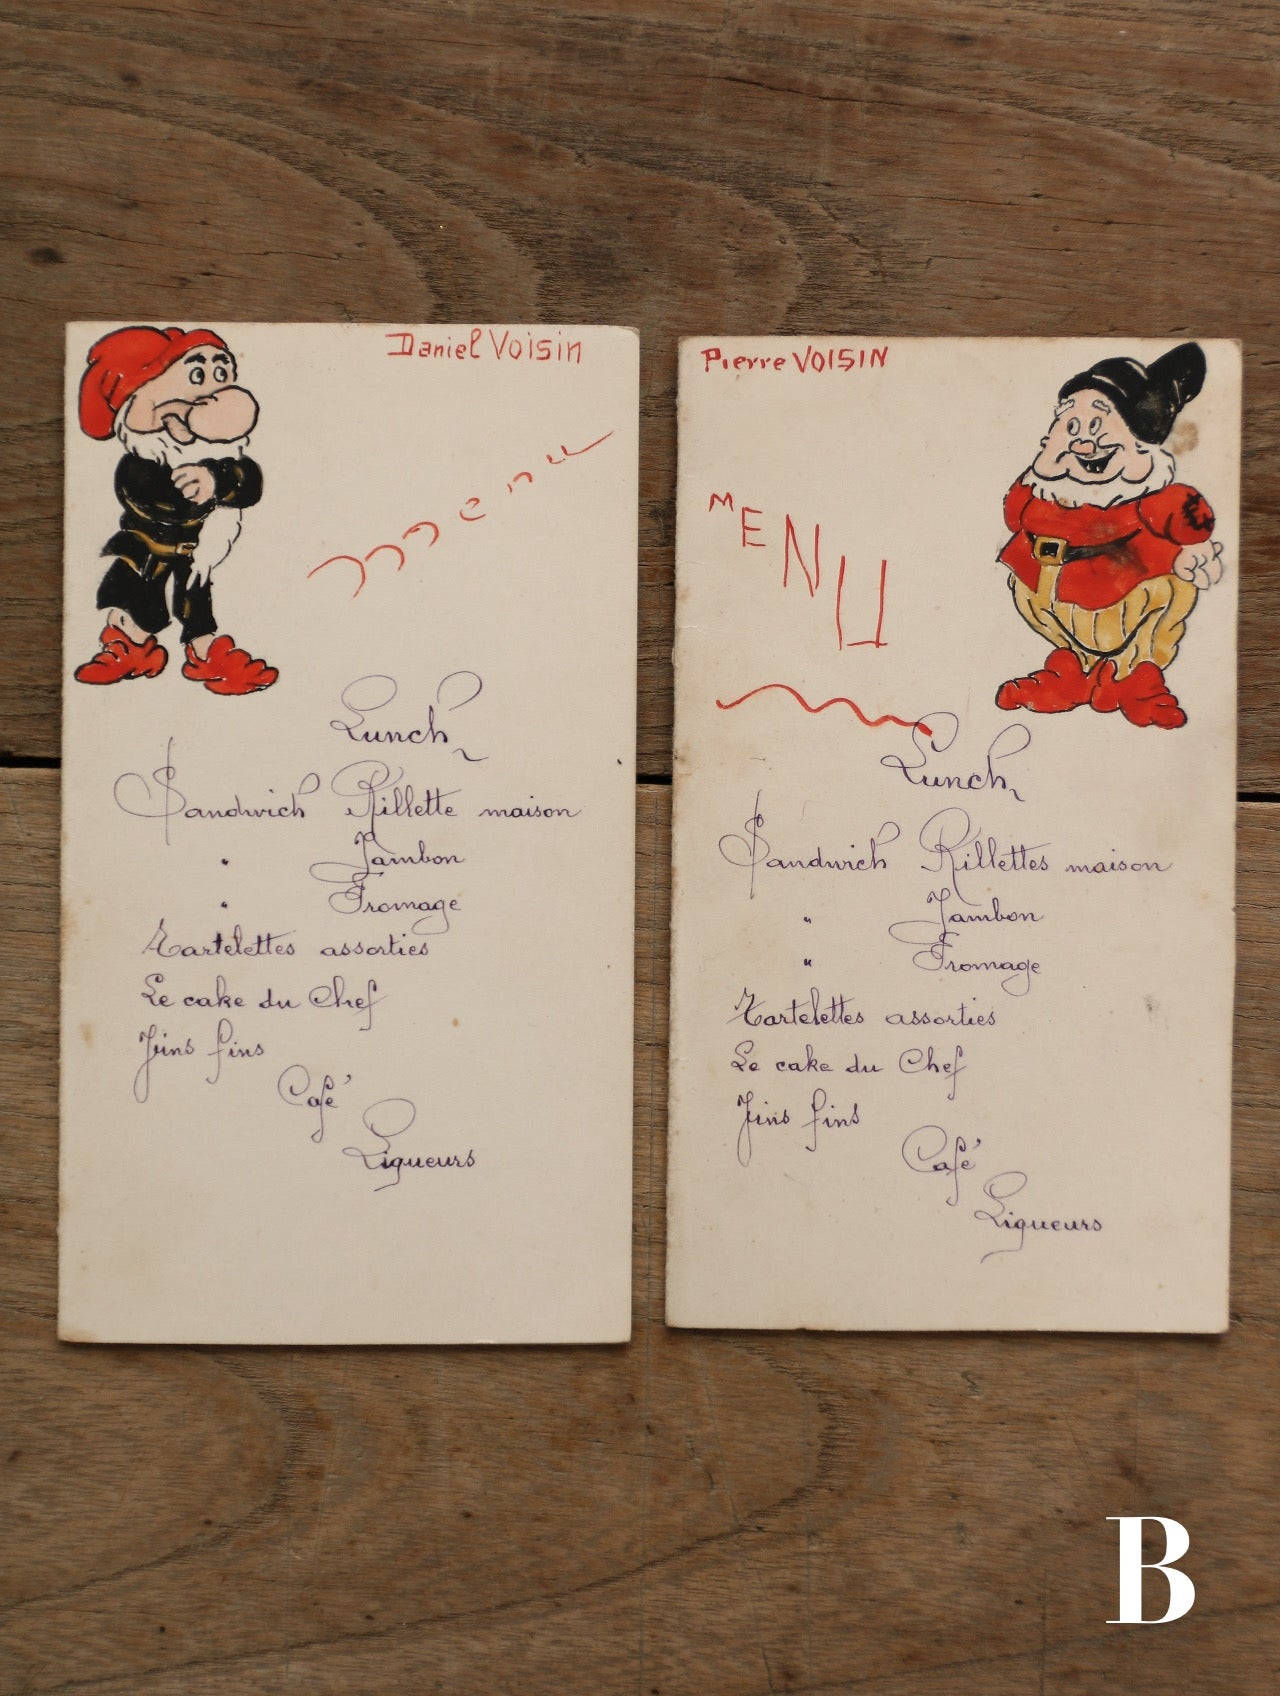 Daniel Voisin
menu
Lunch
Sandwich Rillette maison
" Jambon
" Fromage
Tartelettes assorties
Le cake du Chef
Vins fins
Café
Liqueurs
Pierre VOISIN
MENU
Lunch
Sandwich Rillettes maison
" Jambon
" Fromage
Tartelettes assorties
Le cake du Chef
Vins fins
Café
Liqueurs
B